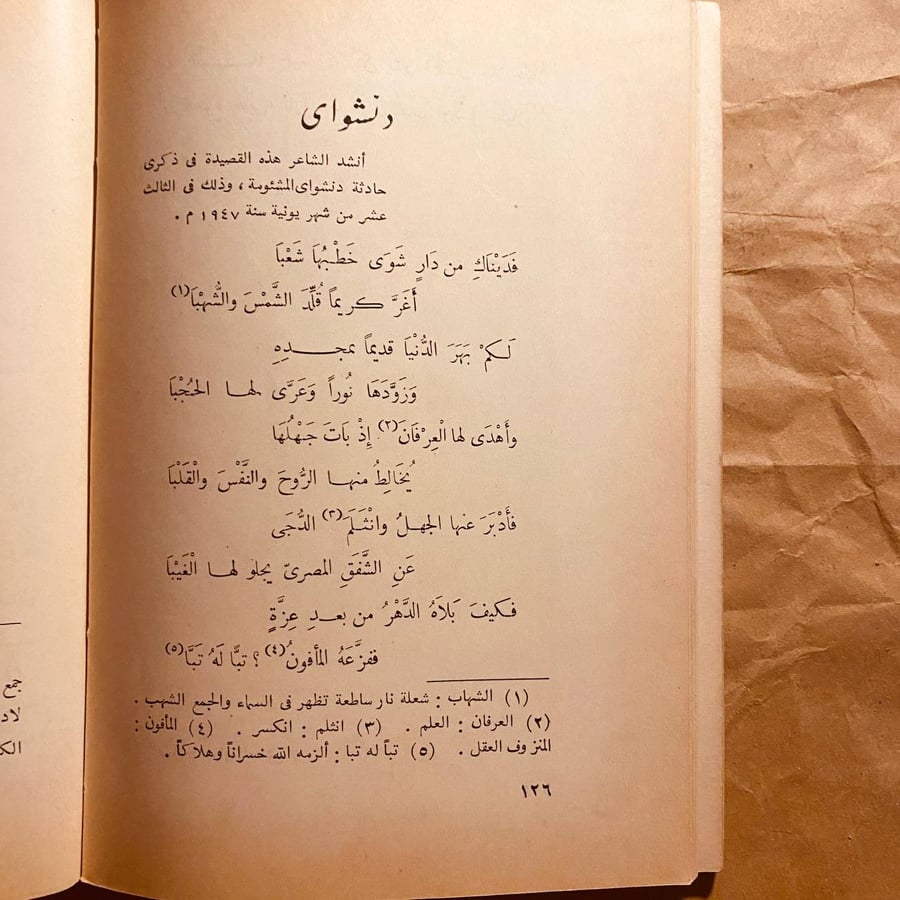 دنشواى
أنشد الشاعر هذه القصيدة فى ذكرى
حادثة دنشواى المشئومة ، وذلك فى الثالث
عشر من شهر يونية سنة ١٩٤٧ م .
فَدَيْنَاكِ من دَارٍ شَوَى خَطْبُهَا شَعْبَا
أَغَرَّ كريماً قُلِّدَ الشَّمْسَ والشُّهْبَا(١)
لَكمْ بَهَرَ الدُّنْيَا قديماً بمجـدِهِ
وَزَوَّدَهَا نُوراً وَعَرَّى لهـا الحُجْبَا
وأَهْدَى لها الْعِرْفَانَ(٢) إِذْ بَاتَ جَهْلُهَا
يُخَالِطُ منهـا الرُّوحَ والنَّفْسَ والْقَلْبَا
فَأَدْبَرَ عنها الجهلُ وانْثَلَمَ(٣) الدُّجَى
عَنِ الشَّفَقِ المصرىّ يجلو لهـا الْغَيْبَا
فكيفَ بَلاَهُ الدَّهْرُ من بعـدِ عِزَّةٍ
ففزَّعَهُ المأفونُ(٤) ؟ تبًّا لَهُ تَبَّا(٥)
(١) الشهاب : شعلة نار ساطعة تظهر فى السماء والجمع الشهب .
(٢) العرفان : العلم . (٣) انثلم : انكسر . (٤) المأفون :
المنزوف العقل . (٥) تباً له تبا : ألزمه الله خسراناً وهلاكاً .
١٢٦
جمع